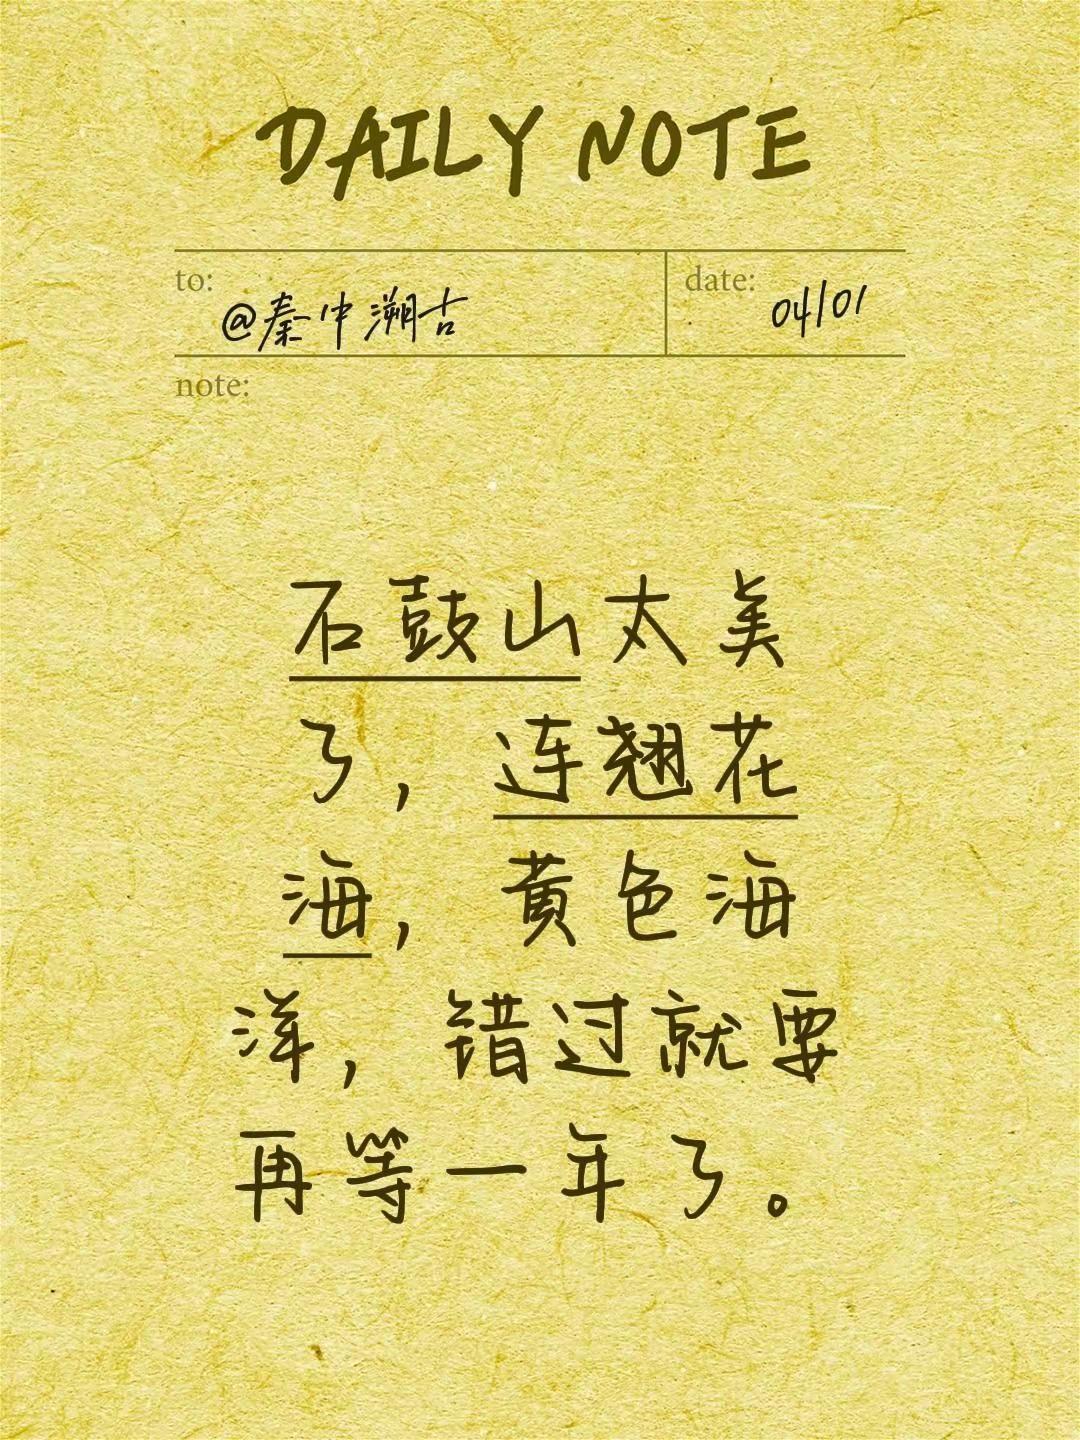 DAILY NOTE
to: @秦中溯古
date: 04/01
note:
石鼓山太美
了，连翘花
海，黄色海
洋，错过就要
再等一年了。